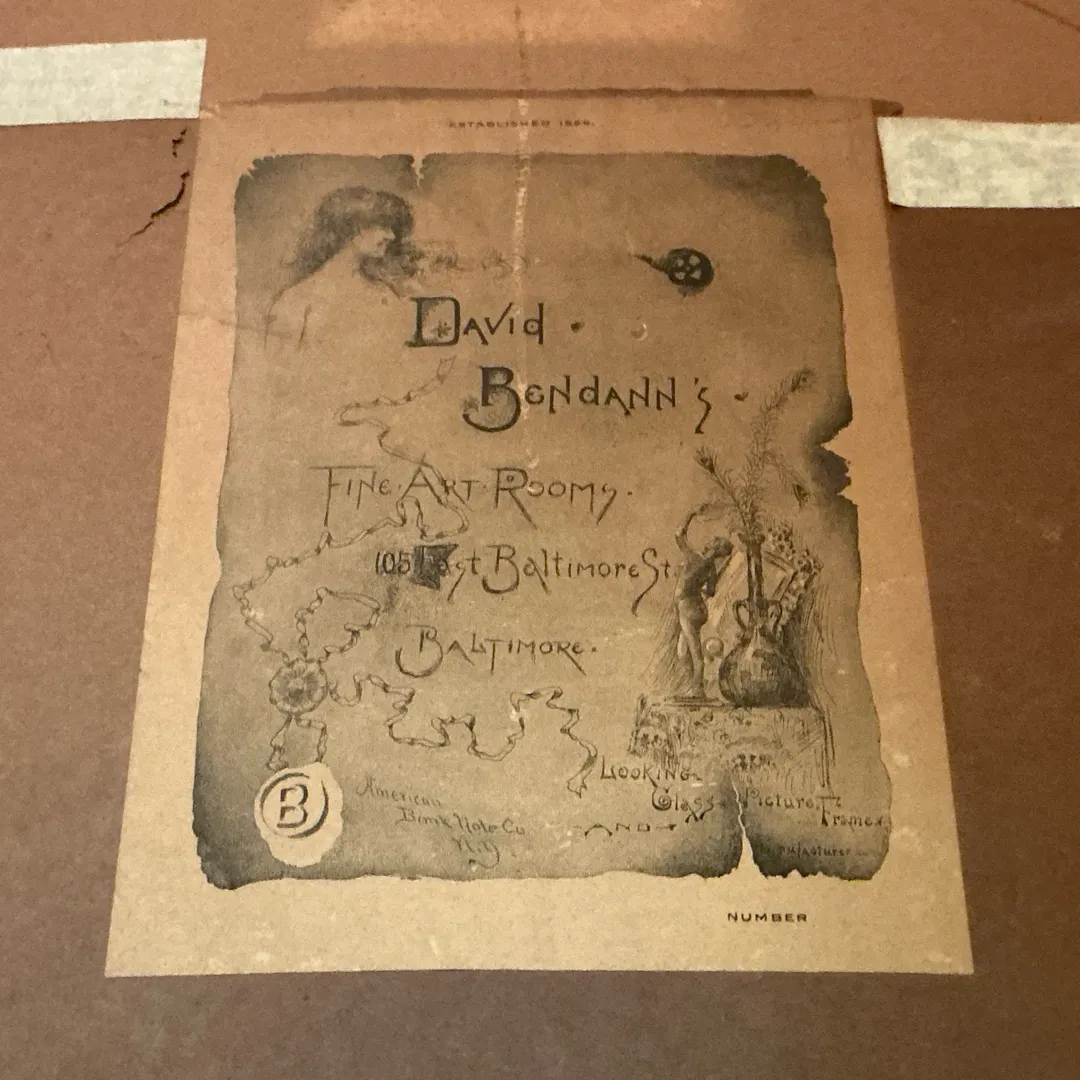 ESTABLISHED 1859.
DAVID
BENDANN'S
FINE·ART·ROOMS.
105 East Baltimore St.
BALTIMORE.
B
American
Bank Note Co.
N.Y.
LOOKING
Glass Picture Frame
AND
Manufacturer
NUMBER